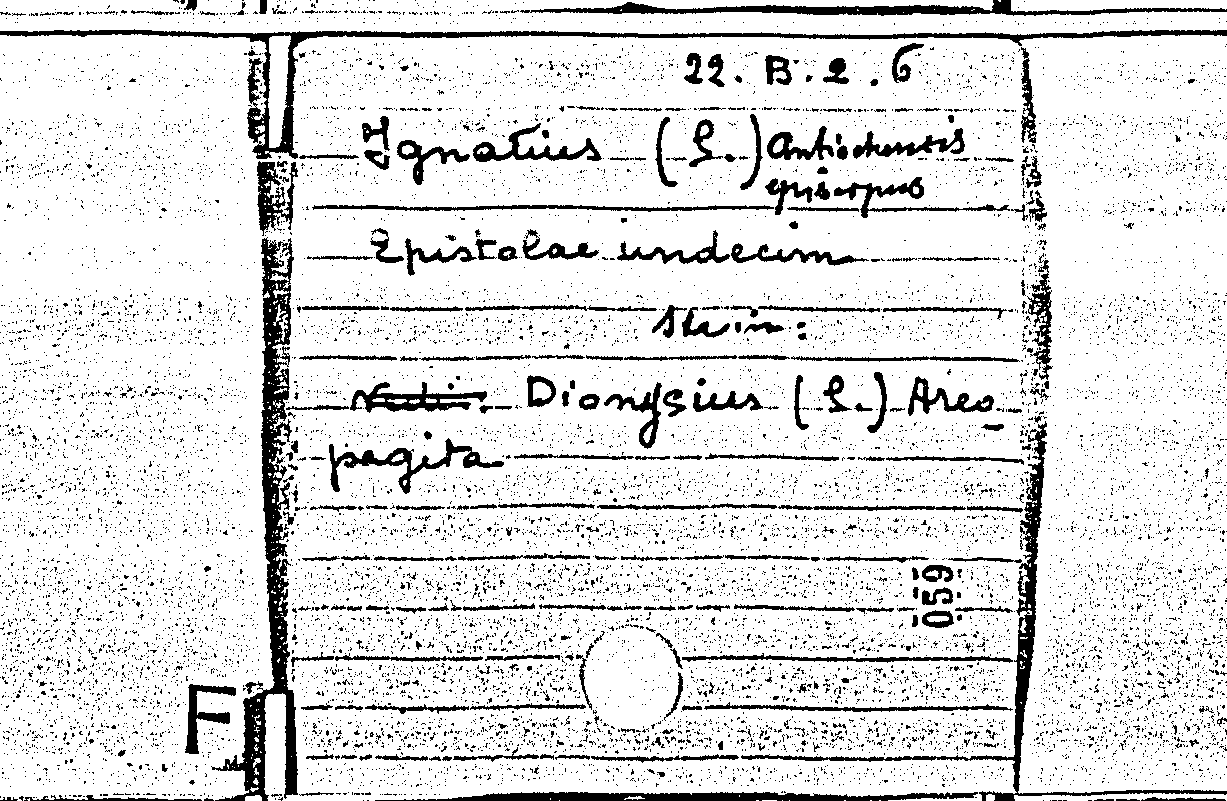 22. B. 2. 6
Ignatius (S.) Antiochensis
episcopus
Epistolae undecim
Dionysius (S.) Areo_
pagita
059
F